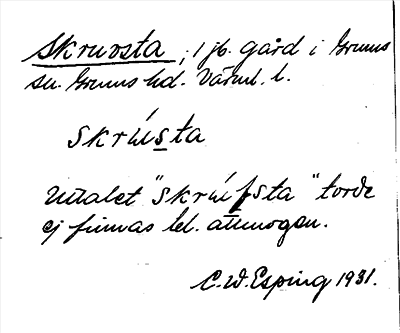 Skruvsta, 1 jb. gård i Grums
sn. Grums hd. Värml. l.
skrústa
Uttalet "skrúfsta" torde
ej finnas bl. allmogen.
C.W. Esping 1931.